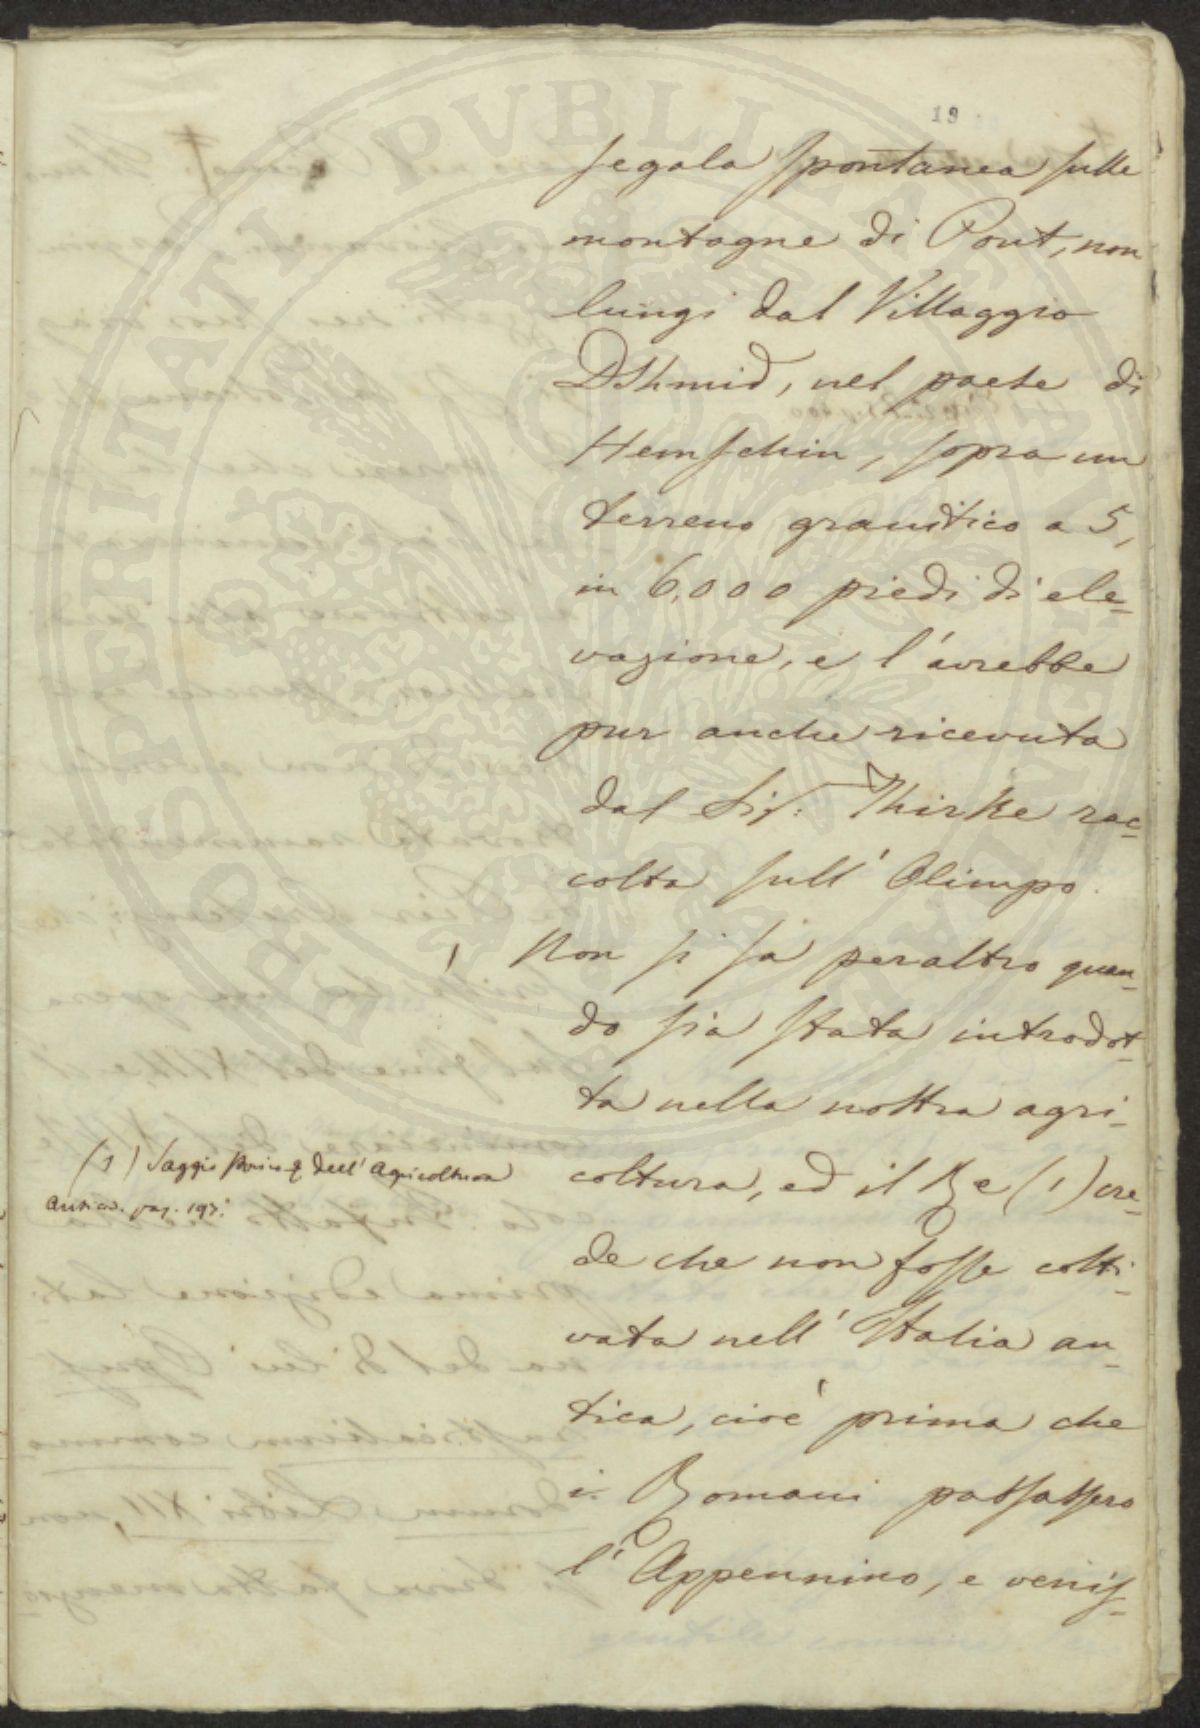 19
segala spontanea sulle
montagne di Pont, non
lungi dal Villaggio
Dshmid, nel paese di
Hemschin, sopra un
terreno granitico a 5,
in 6,000 piedi di ele-
vazione, e l'avrebbe
pur anche ricevuta
dal Sig: Thirke rac-
colta sull' Olimpo.
Non si sà peraltro quan-
do sia stata introdot-
ta nella nostra agri-
coltura, ed il Re (1) cre-
de che non fosse colti-
vata nell' Italia an-
tica, cioè prima che
i Romani passassero
l' Appennino, e venis-
(1) Saggio dell' Agricoltura
antica. pag. 197.
PROSPERITATI PVBLICAE AVGENDAE